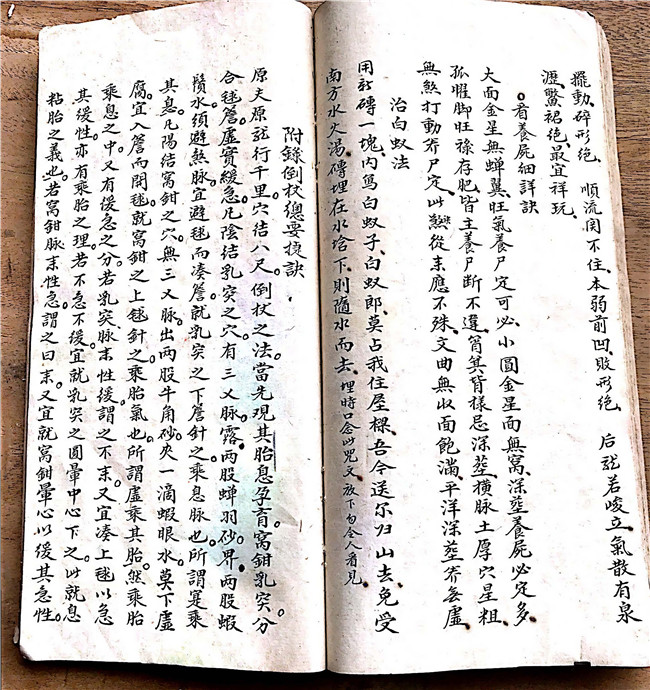 擺動碎形絕 順流関不住本弱前凹敗形絕 后龍若崚立氣散有泉
瀝鱉裙絕最宜祥玩
看養屍細詳訣
大面金星無蟬翼旺氣養尸定可必小圓金星而無窩深塟養屍必定多
孤腥脚旺祿存肥皆主養尸断不違窝其背樣忌深塟橫脉土厚穴星粗
無煞打動养尸定此煞從来應不殊文曲無收面飽滿平洋深塟养無虛
治白蚁法
用新磚一塊內篤白蚁子白蚁即莫占我住屋樑吾今送尔归山去免受
南方水火湯磚埋在水塔下則隨水而去埋時口念此咒文放下勿令人看見
附錄倒杖總要捷訣
原夫原龍行千里穴結八尺倒杖之法當先現其胎息孕育窩鉗乳突分
合毬簷虛實緩急凡陰結乳突之穴有三叉脉露兩股蟬羽砂界兩股蝦
鬚水須避煞脉宜避毬而凑簷就乳突之下簷針之乘息脉也所謂寔乘
其息凡陽結窩鉗之穴無三叉脉出兩股牛角砂夾一滴蝦眼水莫下虛
腐宜入簷而開毬就窩鉗之上毬針之乘胎氣也所謂虛乘其胎然乘胎
乘息之中又有緩急之分若乳突脉来性緩謂之不来又宜凑上毬以急
其緩性亦有乘胎之理若不急不後宜就乳突之圓暈中心下之此就息
粘胎之義也若窩鉗脉来性急謂之曰来又宜就窩鉗暈心以緩其急性